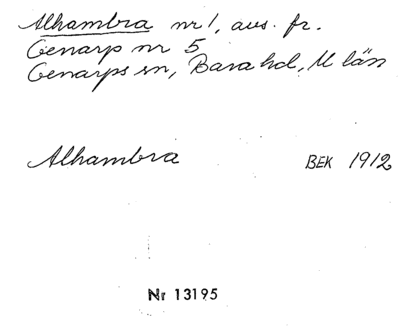 Alhambra nr 1, avs. fr.
Genarp nr 5
Genarps sn, Bara hd, M län
Alhambra BEK 1912
Nr 13195